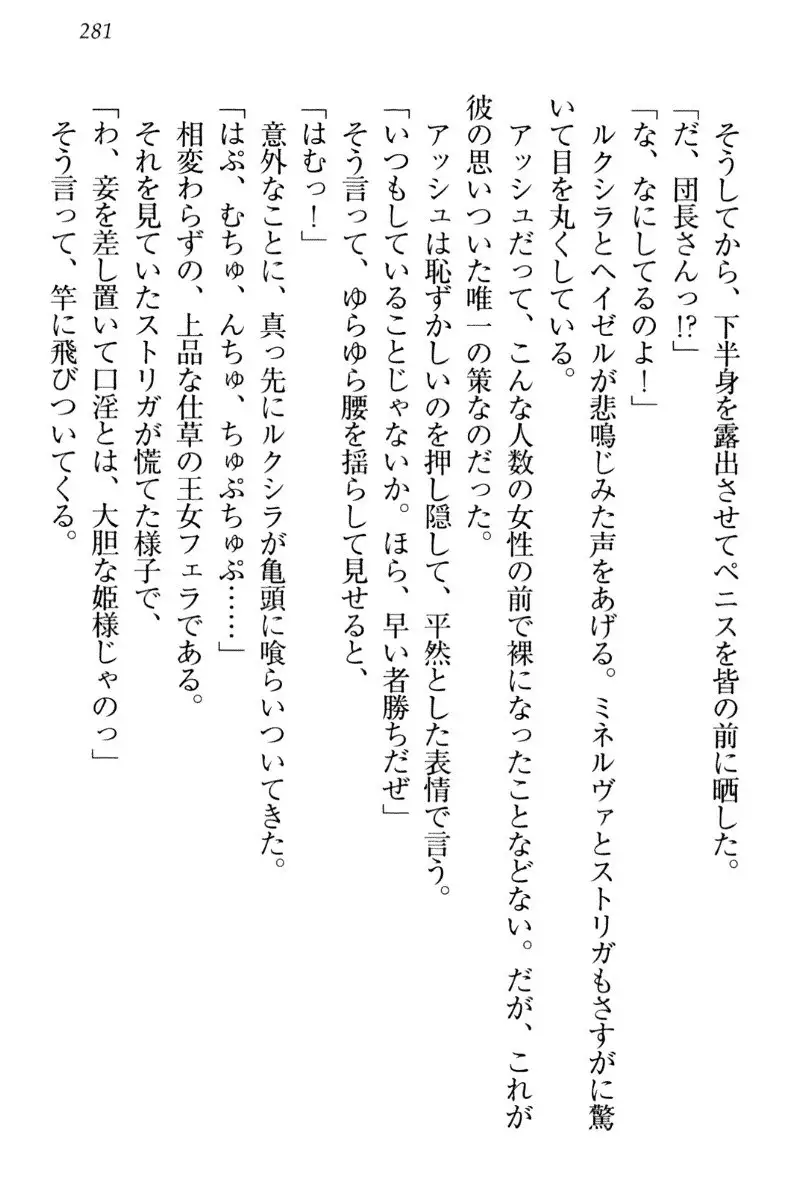 281
そうしてから、下半身を露出させてペニスを皆の前に晒した。
「だ、団長さんっ!?」
「な、なにしてるのよ！」
ルクシラとヘイゼルが悲鳴じみた声をあげる。ミネルヴァとストリガもさすがに驚
いて目を丸くしている。
アッシュだって、こんな人数の女性の前で裸になったことなどない。だが、これが
彼の思いついた唯一の策なのだった。
アッシュは恥ずかしいのを押し隠して、平然とした表情で言う。
「いつもしていることじゃないか。ほら、早い者勝ちだぜ」
そう言って、ゆらゆら腰を揺らして見せると、
「はむっ！」
意外なことに、真っ先にルクシラが亀頭に喰らいついてきた。
「はぷ、むちゅ、んちゅ、ちゅぷちゅぷ……」
相変わらずの、上品な仕草の王女フェラである。
それを見ていたストリガが慌てた様子で、
「わ、妾を差し置いて口淫とは、大胆な姫様じゃのっ」
そう言って、竿に飛びついてくる。